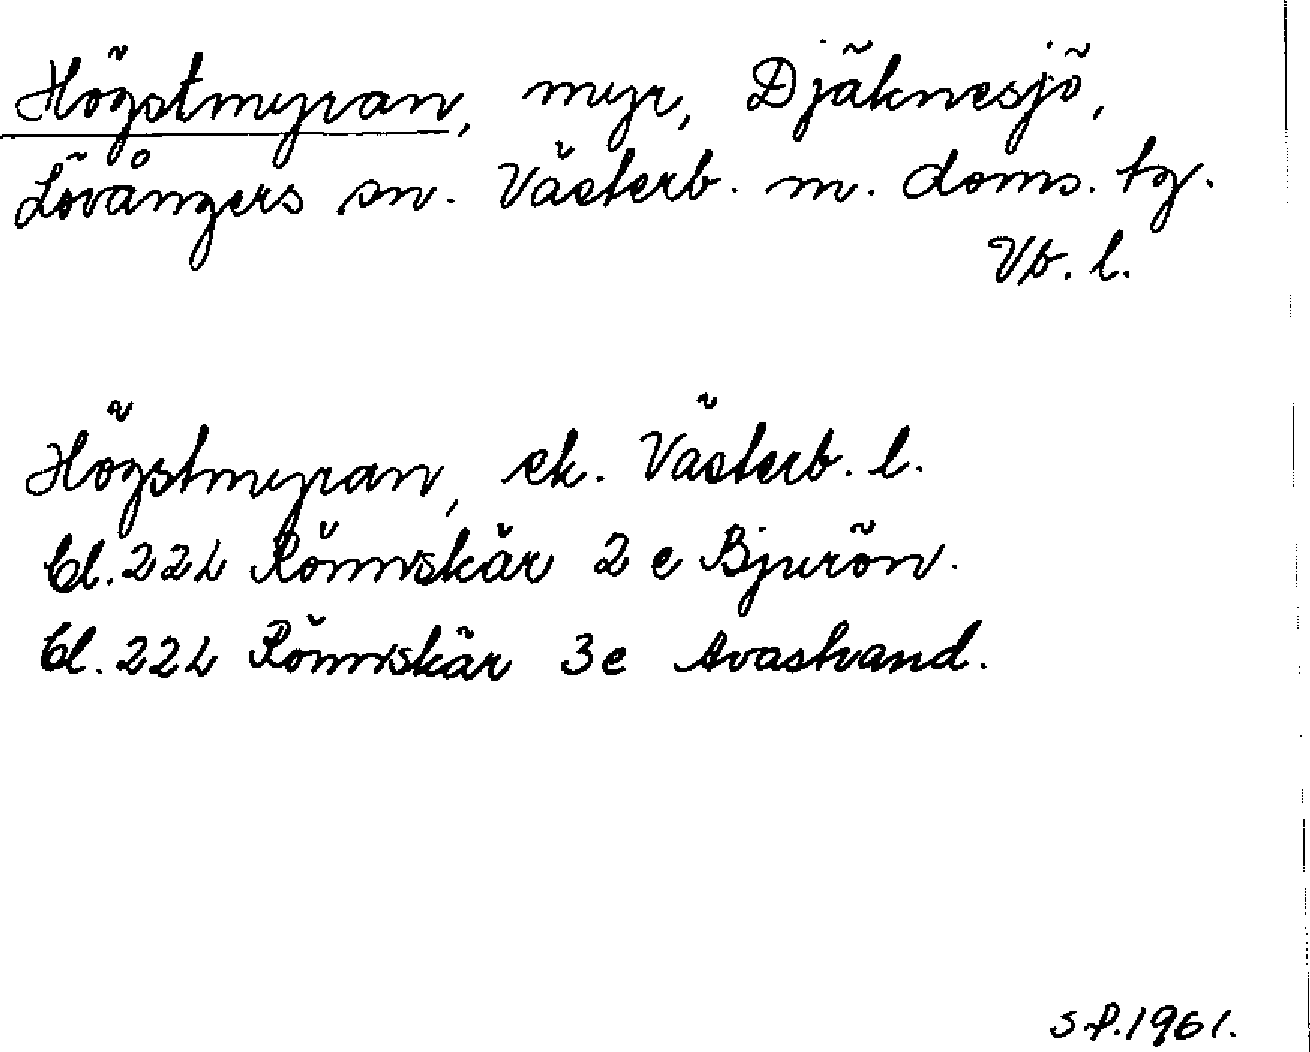 Högstmyran, myr, Djäknesjö,
Lövångers sn. Västerb. m. doms. tg.
Vb. l.
Högstmyran, ek. Västerb. l.
Bl. 22L Rönnskär 2e Bjurön.
Bl. 22L Rönnskär 3e Avastrand.
S.P. 1961.